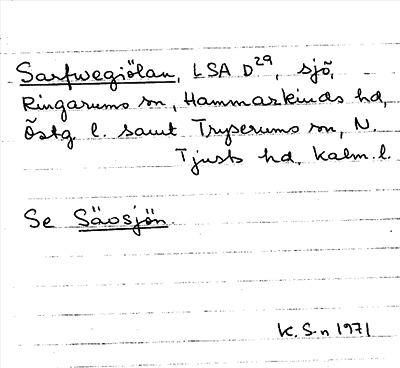 Sarfwegiölan, LSA D29, sjö,
Ringarums sn, Hammarkinds hd,
Östg. l. samt Tryserums sn, N.
Tjusts hd, Kalm. l.
Se Säosjön.
K. S-n 1971